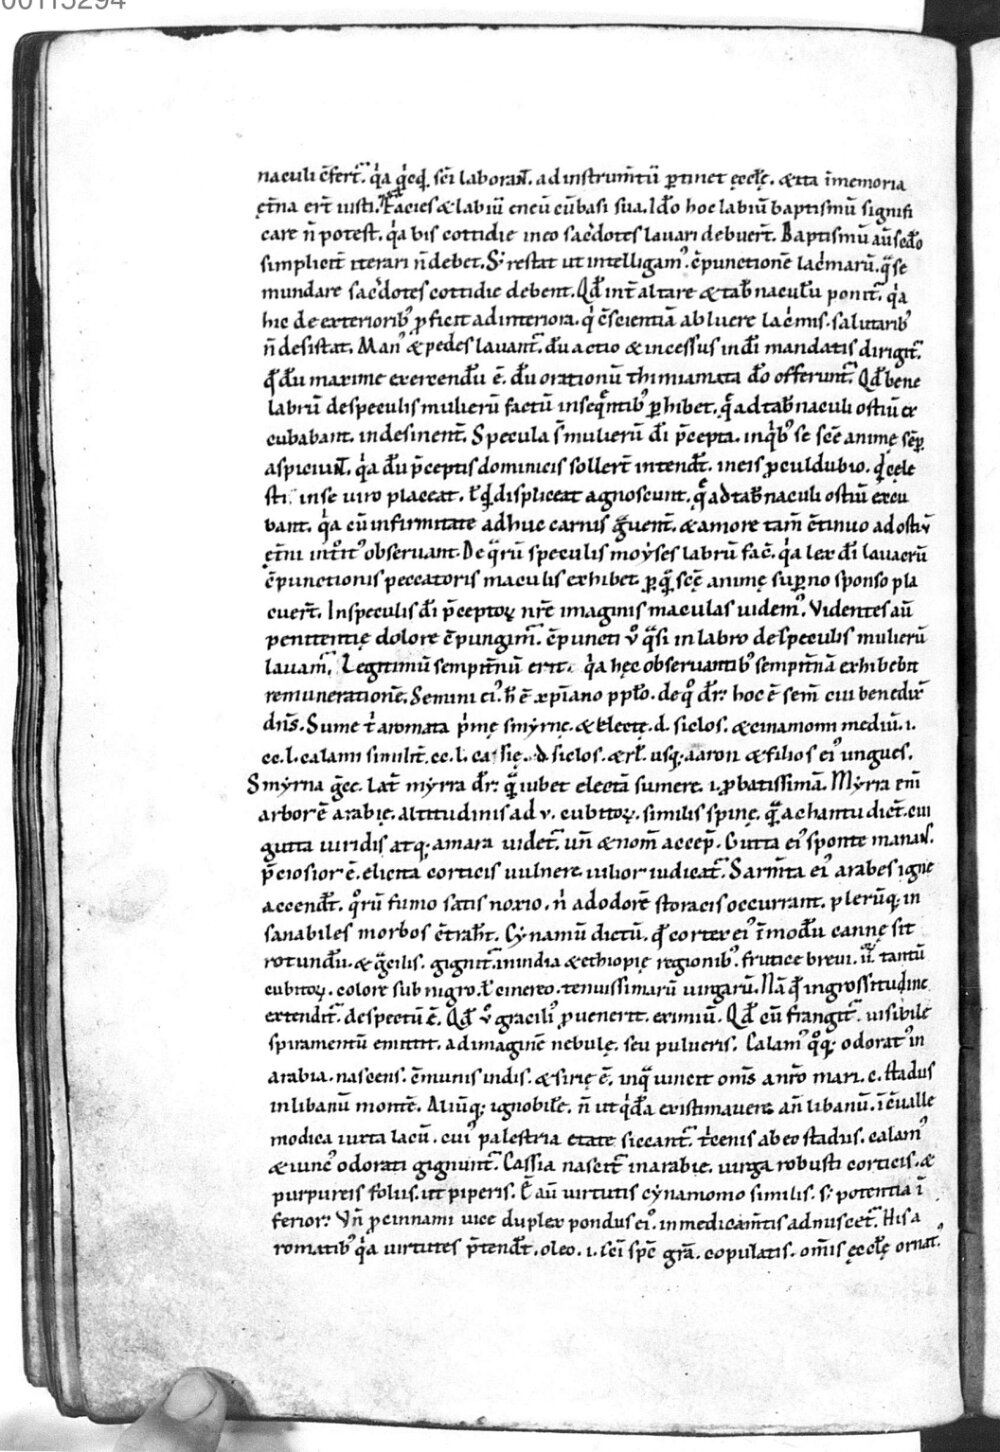 00115294
naculi c̄fert᷑. q̇a q̇cq̣ sc̄i laborant. ad instrum̄tū ꝑtinet ęcclę. & ita ī memoria
ęt̄na ert̄ iusti. Facies & labiū eneū cū basi sua. Ido hoc labiū baptismū signifi
care n̄ potest. q̇a bis cottidie in eo sac̄dotes lauari debuert̄. Baptismū aū sc̄do
simplicit̄ iterari n̄ debet. S; restat ut intelligam᷒. c̄punctionē lac̄marū. q̄ se
mundare sac̄dotes cottidie debent. Qd̄ int̄ altare & tab̄naculū ponit᷑. q̇a
hic de exteriorib᷒ ꝓficit ad interiora. q̇ c̄scientiā abluere lac̄mis salutarib᷒
n̄ desistat. Man᷒ & pedes lauant᷑. dū actio & incessus in dī mandatis dirigit᷑.
qd̄ dū maxime exercendū ē. dū orationū thimiamata dō offerunt᷑. Qd̄ bene
labrū de speculis mulierū factū in seq̄ntib᷒ ꝑhibet. q̄ ad tab̄naculi ostiū ex
cubabant. in desinent̄. Specula s̄ mulierū dī p̄cepta. in q̇b᷒ se sc̄e animę semꝑ
aspiciunt. q̇a dū p̄ceptis dominicis sollert̄ intendt̄. in eis ꝓculdubio. q̇ cęle
sti in se uiro placeat. ł q̇d displiceat agnoscunt. q̄ ad tab̄naculi ostiū excu
bant. q̇a cū infirmitate adhuc carnis g̃uent̄. & amore tam̄ c̄tinuo ad ostiū
ęt̄ni int᷒it᷒ obseruant. De q̄rū speculis moyses labrū fac̄. q̇a lex dī lauacrū
c̄punctionis peccatoris maculis exhibet. ꝑ q̄ sc̄ę animę suꝑno sponso pla
cuert̄. In speculis dī p̄ceptoꝝ nr̄ę imaginis maculas uidem᷒. Videntes aū
penitentię dolore c̄pungim᷑. c̄puncti v̊ q̄si in labro de speculis mulierū
lauam᷑. Legitimū sempit̄nū erit. q̇a hęc obseruantib᷒ sempit̄nā exhibebit
remunerationē. Semini ei᷒. h̄ ē xp̄iano pplo. de q̊ dr̄: hoc ē sem̄ cui benedix̄
dn̄s. Sume t̄ aromata p̄mę smyrnę. & electę. d. siclos. & cinamomi mediū. i.
cc. l. calami similit̄. cc. l. ca się. d siclos. & rł. usq; aaron & filios ei᷒ ungues.
Smyrna g̃ce. lat̄ myrra dr̄: q̄ iubet electā sumere. i. ꝓbatissimā. Myrra eni᷒
arbor ē arabię. altitudinis ad v. cubitoꝝ. similis spinę. q̄ achantu dict̄. cui
gutta uiridis atq; amara uidet᷑. un̄ & nom̄ accep̄. Gutta ei᷒ sponte manans.
p̄ciosior ē. elicita corticis uulnere. uilior iudicat᷑. Sarm̄ta ei᷒ arabes igne
accendt̄. q̊rū fumo satis noxio. n̊ ad odorē storacis occurrant. plerūq; in
sanabiles morbos c̄trah̄t. Cynamū dictū. qd̄ cortex ei᷒ ī modū cannę sit
rotundū. & g̃cilis. gignit᷑ in india & ethiopię regionib᷒. frutice breui. ii. tantū
cubitoꝝ. colore subnigro. ł cinereo. tenuissimarū uirgarū. Nā qd̄ in grossitudine
extendit᷑. despectū ē. Qd̄ v̊ gracili᷒ ꝓuenerit. eximiū. Qd̄ cū frangit᷑. uisibile
spiramentū emittit. ad imaginē nebulę. seu pulueris. Calam᷒ q̊q; odorat᷒ in
arabia. nascens. c̄munis indis. & sirię ē. in q̄ uincit om̄s a nr̄o mari. c. stadus
in libanū montē. Aliūq; ignobile. n̄ ut q̇dā existimauert̄ an̄ libanū. ī c̄ualle
modica iuxta lacū. cui᷒ palestria etate siccant᷑. t̄cenis ab eo stadus. calam᷒
& iunc᷒ odorati gignunt᷑. Cassia nascit᷑ in arabię. uirga robusti corticis. &
purpureis folus. ut piperis. Ē aū uirtutis cynamomo similis. s; potentia ī
ferior: Vn̄ ꝓ cinnami uice duplex pondus ei᷒. in medicam̄tis admiscet᷑. His a
romatib᷒ q̇a uirtutes p̄tendt̄. oleo. i. sc̄i spc̄ grā. copulatis. om̄is ęcclę ornat᷒